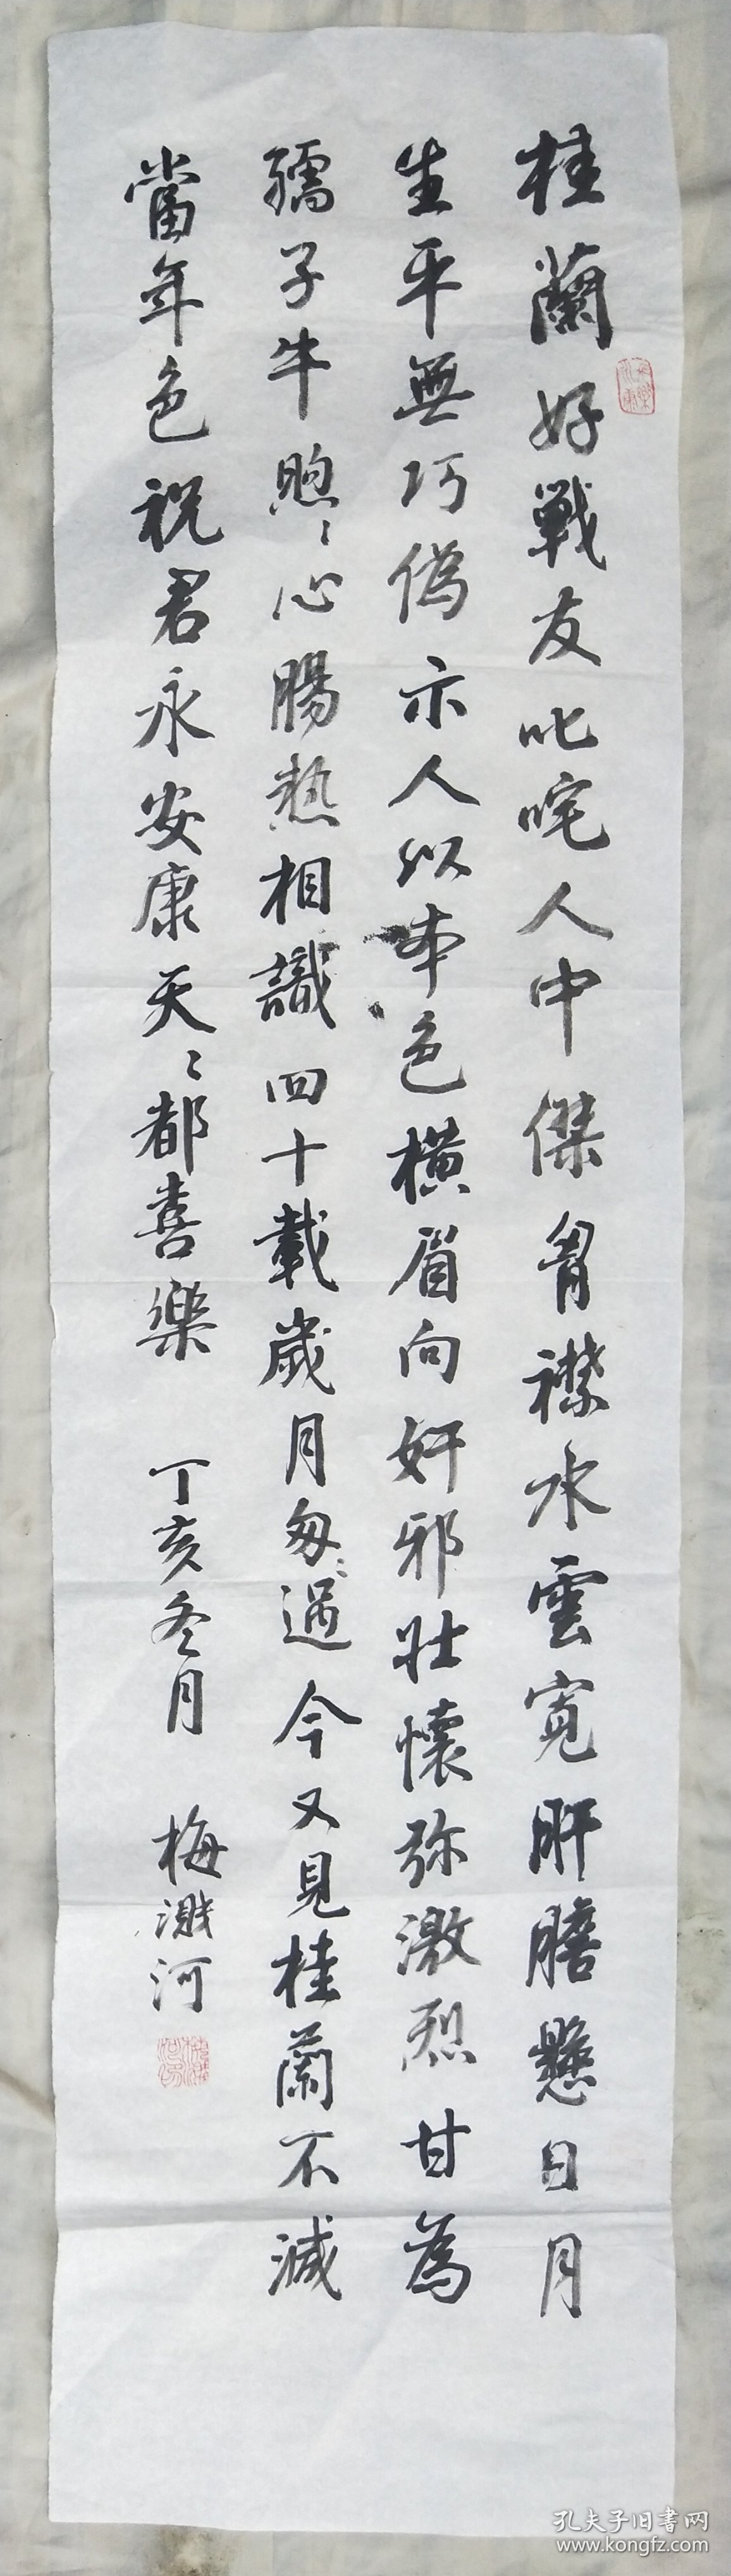 桂蘭好戰友叱咤人中傑胷襟水雲寬肝膽懸日月
生平無巧偽示人以本色横眉向奸邪壯懷弥激烈甘為
孺子牛煦〻心腸熱相識四十載歲月匆〻過今又見桂蘭不減
當年色祝君永安康天〻都喜樂
丁亥冬月
梅溅河
孔夫子旧書网
www.kongfz.com